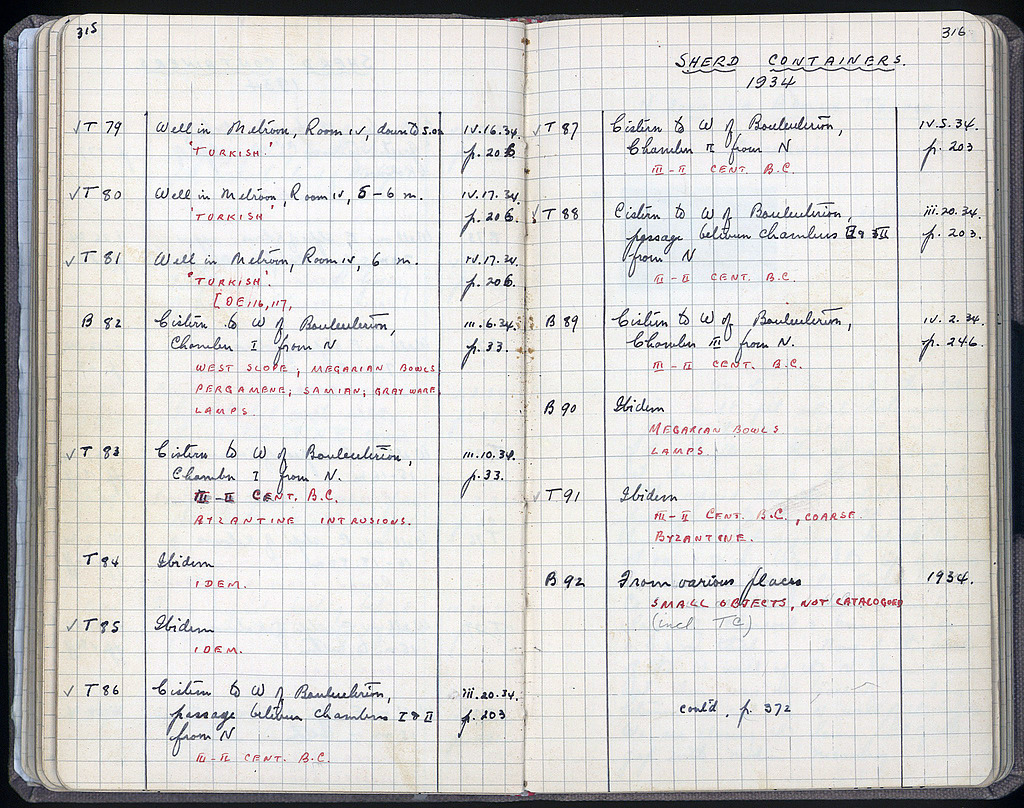 315
√ T 79 Well in Metroon, Room IV, down to 5.0m IV.16.34.
'TURKISH.' p. 206.
√ T 80 Well in Metroon, Room IV, 5-6 m. IV.17.34.
'TURKISH' p. 206.
√ T 81 Well in Metroon, Room IV, 6 m. IV.17.34.
'TURKISH'. p. 206.
[OE 116, 117,
B 82 Cistern to W of Bouleuterion, III.6.34.
Chamber I from N p. 33.
WEST SLOPE; MEGARIAN BOWLS
PERGAMENE; SAMIAN; GRAY WARE,
LAMPS.
√ T 83 Cistern to W of Bouleuterion, III.10.34.
Chamber I from N. p. 33.
III-II CENT. B.C.
BYZANTINE INTRUSIONS.
T 84 Ibidem
IDEM.
√ T 85 Ibidem
IDEM.
√ T 86 Cistern to W of Bouleuterion, iii.20.34.
passage between chambers I & II p. 203
from N
III-II CENT. B.C.
316
SHERD CONTAINERS.
1934
√ T 87 Cistern to W of Bouleuterion, IV.5.34.
Chamber II from N p. 203
III-II CENT. B.C.
√ T 88 Cistern to W of Bouleuterion, iii.20.34.
passage between chambers & II p. 203.
from N
III-II CENT. B.C.
B 89 Cistern to W of Bouleuterion, IV.2.34.
Chamber III from N. p. 246.
III-II CENT. B.C.
B 90 Ibidem
MEGARIAN BOWLS
LAMPS.
√ T 91 Ibidem
III-II CENT. B.C., COARSE.
BYZANTINE.
B 92 From various places 1934.
SMALL OBJECTS, NOT CATALOGUED
(incl TC)
cont'd. p. 372